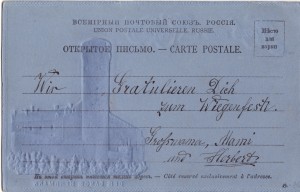 ВСЕМІРНЫЙ ПОЧТОВЫЙ СОЮЗЪ. РОССІЯ.
UNION POSTALE UNIVERSELLE. RUSSIE.
ОТКРЫТОЕ ПИСЬМО. — CARTE POSTALE.
Мѣсто
для
марки
Wir Gratulieren Dich
zum Wiegenfest.
Grossmama, Mami
und Herbert
На этой сторонѣ пишется только адресъ. — Côté réservé exclusivement à l'adresse.